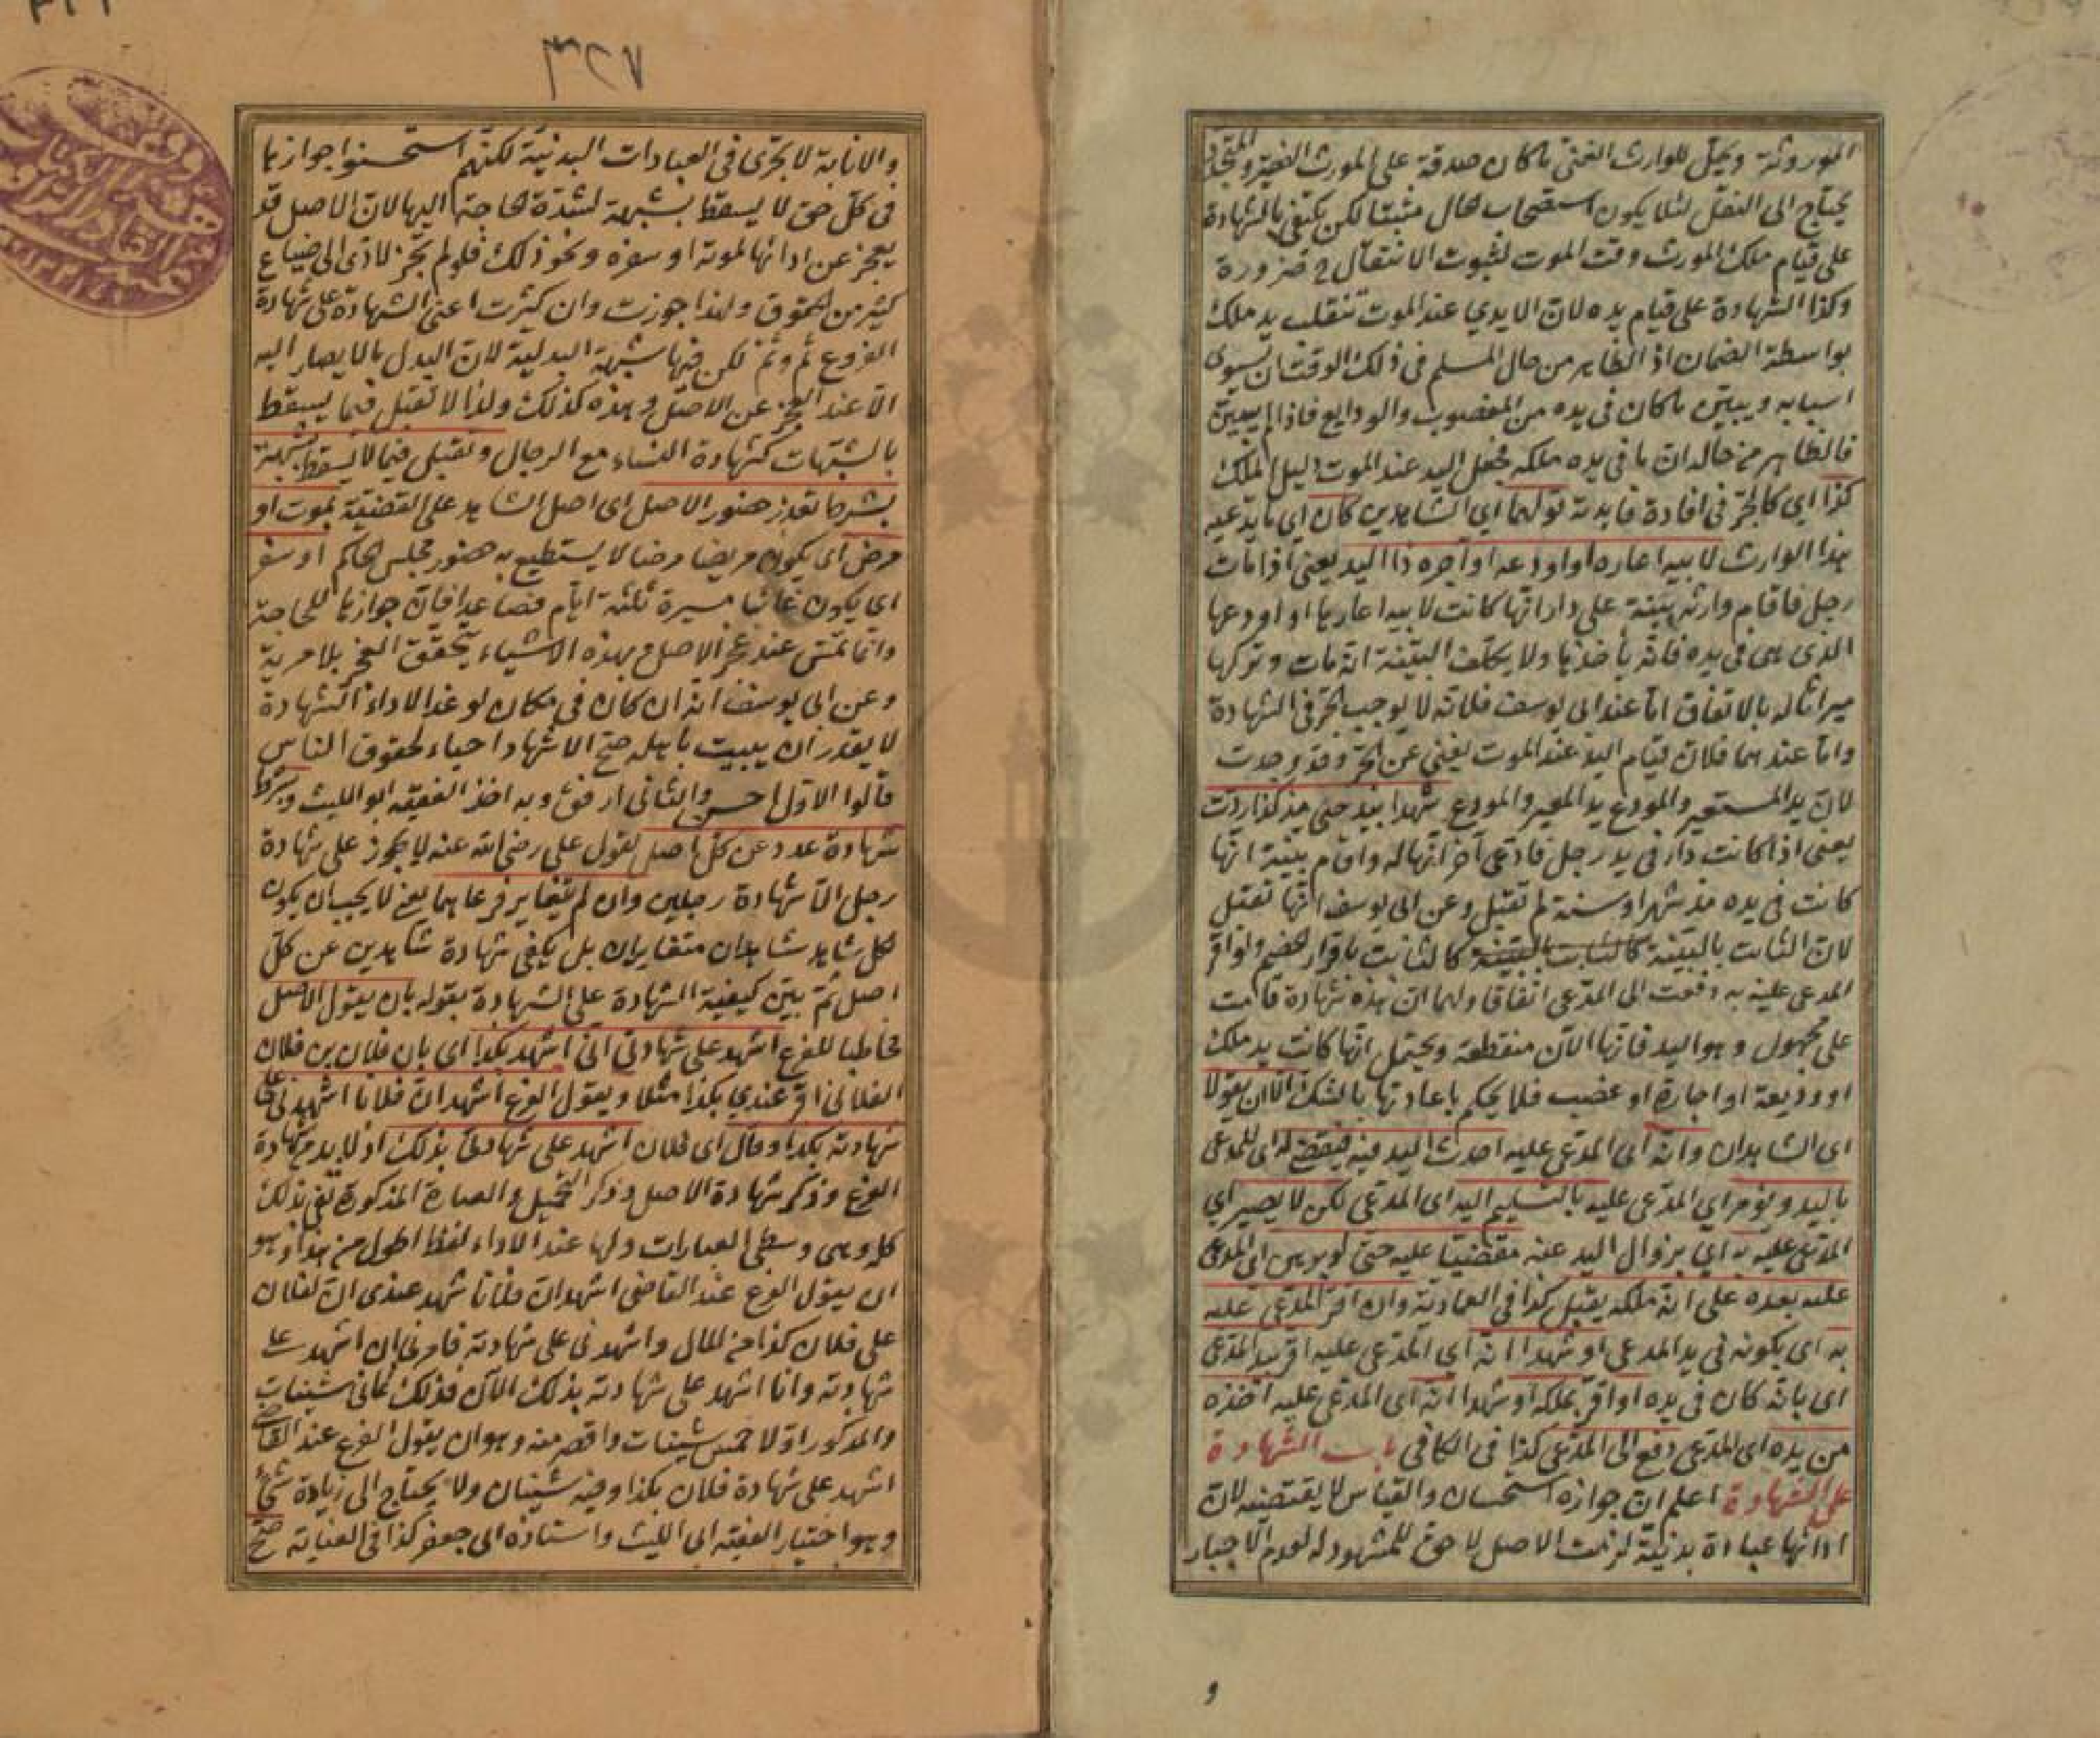 الموروثة ويحل للوارث الغني ما كان صدقة على المورث الفقير والمتجدد
يحتاج الى النقل لئلا يكون استصحاب الحال مثبتا لكن يكتفى بالشهادة
على قيام ملك المورث وقت الموت لثبوت الانتقال ح ضرورة
وكذا الشهادة على قيام يده لان الايدي عند الموت تنقلب يد ملك
بواسطة الضمان اذ الظاهر من حال المسلم في ذلك الوقت ان يسوي
اسبابه ويبين ما كان في يده من المغصوب والودايع فاذا لم يبين
فالظاهر من حاله ان ما في يده ملكه فجعل اليد عند الموت دليل الملك
كذا اي كالجر في افادة فايدته قولهما اي الشاهدين كان اي ما يدعيه
هذا الوارث لابيه اعاره او اودعه او آجره ذا اليد يعني اذا مات
رجل فاقام وارثه بينة على دار انها كانت لابيه اعارها او اودعها
الذي هي في يده فانه يأخذها ولا يكلف البينة انه مات وتركها
ميراثا له بالاتفاق اما عند ابي يوسف فلانه لا يوجب الجر في الشهادة
واما عندهما فلان قيام اليد عند الموت يغني عن الجر وقد وجدت
لان يد المستعير والمودع يد المعير والمودع شهدا بيد حي مذ كذا ردت
يعني اذا كانت دار في يد رجل فادعى آخر انها له واقام بينة انها
كانت في يده مذ شهر او سنة لم تقبل وعن ابي يوسف انها تقبل
لان الثابت بالبينة كالثابت بالبينة كالثابت باقرار الخصم ولو اقر
المدعى عليه به دفعت الى المدعي اتفاقا ولهما ان هذه شهادة قامت
على مجهول وهو اليد فانها الآن منقطعة ويحتمل انها كانت يد ملك
او وديعة او اجارة او غصب فلا يحكم باعادتها بالشك الا ان يقولا
اي الشاهدان وانه اي المدعى عليه احدث اليد فيه فيقضى له اي للمدعي
باليد ويؤمر اي المدعى عليه بالتسليم اليه اي المدعي لكن لا يصير اي
المدعى عليه به اي بزوال اليد عنه مقضيا عليه حتى لو برهن اي المدعى
عليه بعده على انه ملكه يقبل كذا في العمادية وان اقر المدعى عليه
به اي بكونه في يد المدعي او شهدا انه اي المدعى عليه اقر بيد المدعي
اي بانه كان في يده او اقر بملكه او شهدا انه اي المدعى عليه اخذه
من يده اي المدعي دفع الى المدعي كذا في الكافي باب الشهادة
على الشهادة اعلم ان جوازه استحسان والقياس لا يقتضيه لان
ادائها عبادة بدنية لزمت الاصل لا حق للمشهود له لعدم الاجبار
والانابة لا تجرى في العبادات البدنية لكنهم استحسنوا جوازها
في كل حق لا يسقط بشبهة لشدة الحاجة اليها لان الاصل قد
يعجز عن ادائها لموته او سفره ونحو ذلك فلو لم تجز لادى الى ضياع
كثير من الحقوق ولهذا جوزت وان كثرت اعني الشهادة على شهادة
الفروع ثم وثم لكن فيها شبهة البدلية لان البدل ما لا يصار اليه
الا عند العجز عن الاصل وهذه كذلك ولذا لا تقبل فيما يسقط
بالشبهات كشهادة النساء مع الرجال وتقبل فيما لا يسقط بشبهة
بشرط تعذر حضور الاصل اي اصل الشاهد على القضية بموت او
مرض اي يكون مريضا مرضا لا يستطيع به حضور مجلس الحاكم او سفر
اي يكون غائبا مسيرة ثلثة ايام فصاعدا فان جوازها للحاجة
وانما تمس عند عجز الاصل وبهذه الاشياء يتحقق العجز بلا مرية
وعن ابي يوسف انه ان كان في مكان لو غدا لاداء الشهادة
لا يقدر ان يبيت باهله صح الاشهاد احياء لحقوق الناس
قالوا الاول احسن والثاني ارفق وبه اخذ الفقيه ابو الليث وبشرط
شهادة عدد عن كل اصل لقول علي رضي الله عنه لا يجوز على شهادة
رجل الا شهادة رجلين وان لم يتغاير فرعاهما يعني لا يجب ان يكون
لكل شاهد شاهدان متغايران بل يكفي شهادة شاهدين عن كل
اصل ثم بين كيفية الشهادة على الشهادة بقوله بان يقول الاصل
مخاطبا للفرع اشهد على شهادتي اني اشهد بكذا اي بان فلان بن فلان
الفلاني اقر عندي بكذا مثلا ويقول الفرع اشهد ان فلانا اشهدني على
شهادته بكذا وقال اي فلان اشهد على شهادتي بذلك اذ لا بد من شهادة
الفرع وذكر شهادة الاصل وذكر التحميل والعبارة المذكورة تفي بذلك
كله وهي وسطى العبارات ولها عند الاداء لفظ اطول من هذا وهو
ان يقول الفرع عند القاضي اشهد ان فلانا شهد عندي ان لفلان
على فلان كذا من المال واشهدني على شهادته فامرني ان اشهد على
شهادته وانا اشهد على شهادته بذلك الآن فذلك ثماني شينات
والمذكور اولا خمس شينات واقصر منه وهو ان يقول الفرع عند القاضي
اشهد على شهادة فلان بكذا وفيه شينان ولا يحتاج الى زيادة شيء
وهو اختيار الفقيه ابي الليث واستاذه ابي جعفر كذا في العناية صح